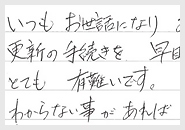 いつも お世話になり
更新の手続きを 早
とても 有難いです。
わからない事が あれば